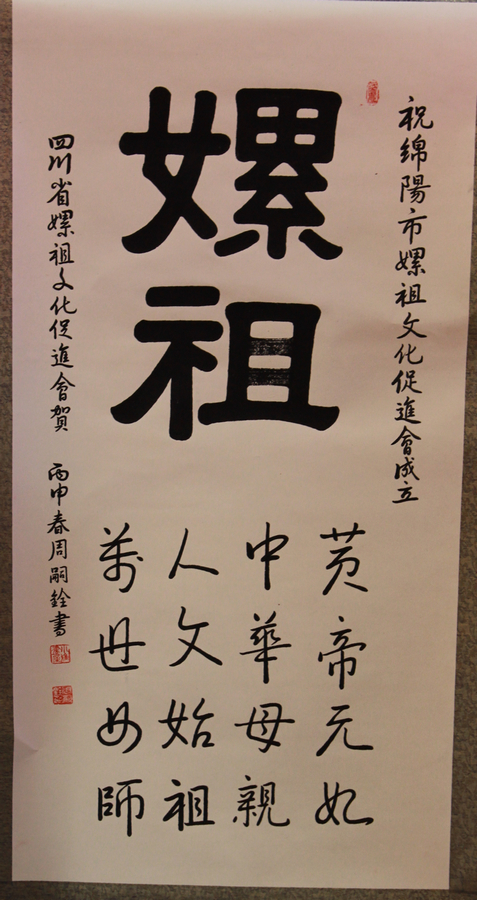 祝绵陽市嫘祖文化促進會成立
嫘祖
黄帝元妃
中華母親
人文始祖
萬世女師
四川省嫘祖文化促進會贺
丙申春周嗣銓書